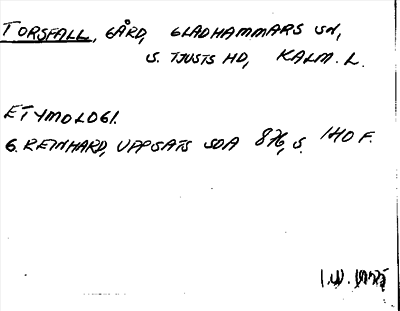 TORSFALL, GÅRD, GLADHAMMARS SN,
S. TJUSTS HD, KALM. L.
ETYMOLOGI.
G. REINHARD, UPPSATS SOA 876, S. 140 F.
I.W.